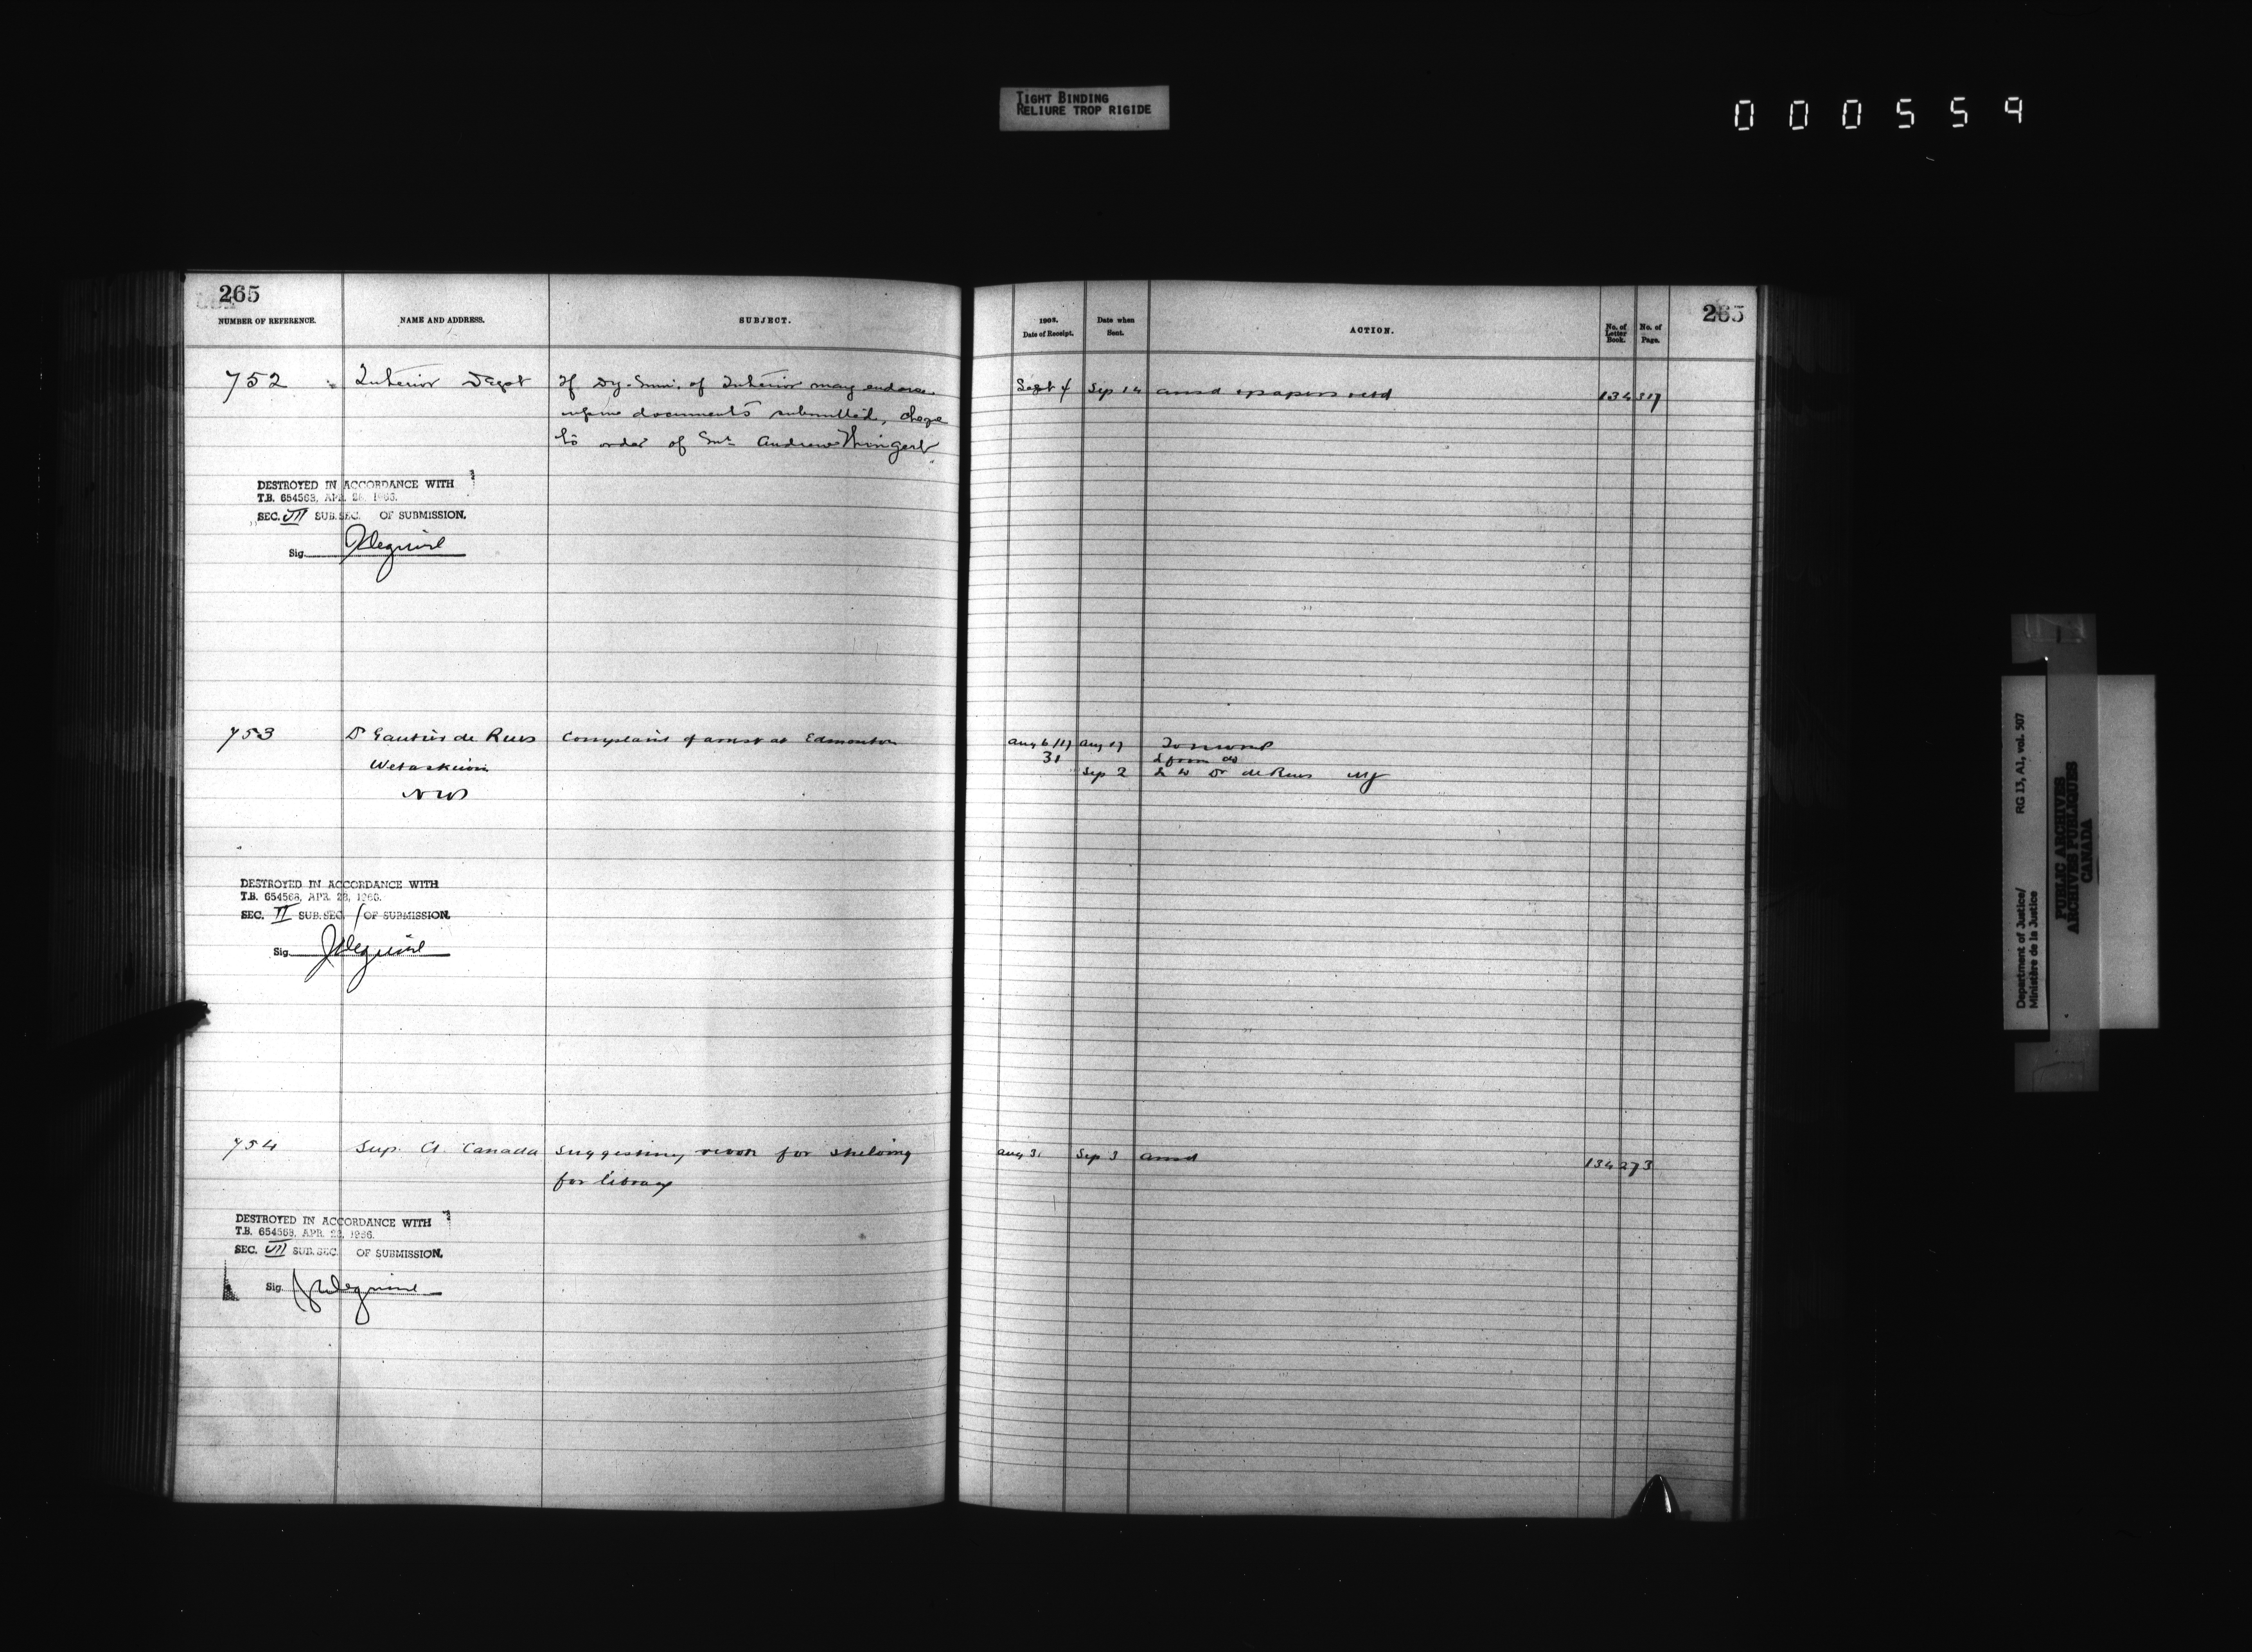 TIGHT BINDING
RELIURE TROP RIGIDE
000559
265
NUMBER OF REFERENCE.
NAME AND ADDRESS.
SUBJECT.
752
Interior Dept
If Dy. Min. of Interior may endorse
documents submitted, cheque
to order of Mr Andrew
DESTROYED IN ACCORDANCE WITH
T.B. 654563, APR. 28, 1966.
SEC. VII SUB.SEC. OF SUBMISSION.
Sig.
753
Dr Gautier de Rues
Wetaskiwin
NWT
Complaint of arrest at Edmonton
DESTROYED IN ACCORDANCE WITH
T.B. 654563, APR. 28, 1966.
SEC. VI SUB.SEC. 1 OF SUBMISSION.
Sig.
754
Sup. Ct. Canada
Suggesting room for shelving
for library
DESTROYED IN ACCORDANCE WITH
T.B. 654563, APR. 28, 1966.
SEC. VII SUB.SEC. OF SUBMISSION.
Sig.
265
1903.
Date of Receipt.
Date when
Sent.
ACTION.
No. of
Letter
Book.
No. of
Page.
Sept 4 Sep 14 ansd & papers retd 134 317
Aug 6/17 Aug 17
31
Sep 2 L to Dr de Rues
Aug 31 Sep 3 ansd 134 273
Department of Justice/
Ministère de la Justice
RG 13, A1, vol. 507
PUBLIC ARCHIVES
ARCHIVES PUBLIQUES
CANADA